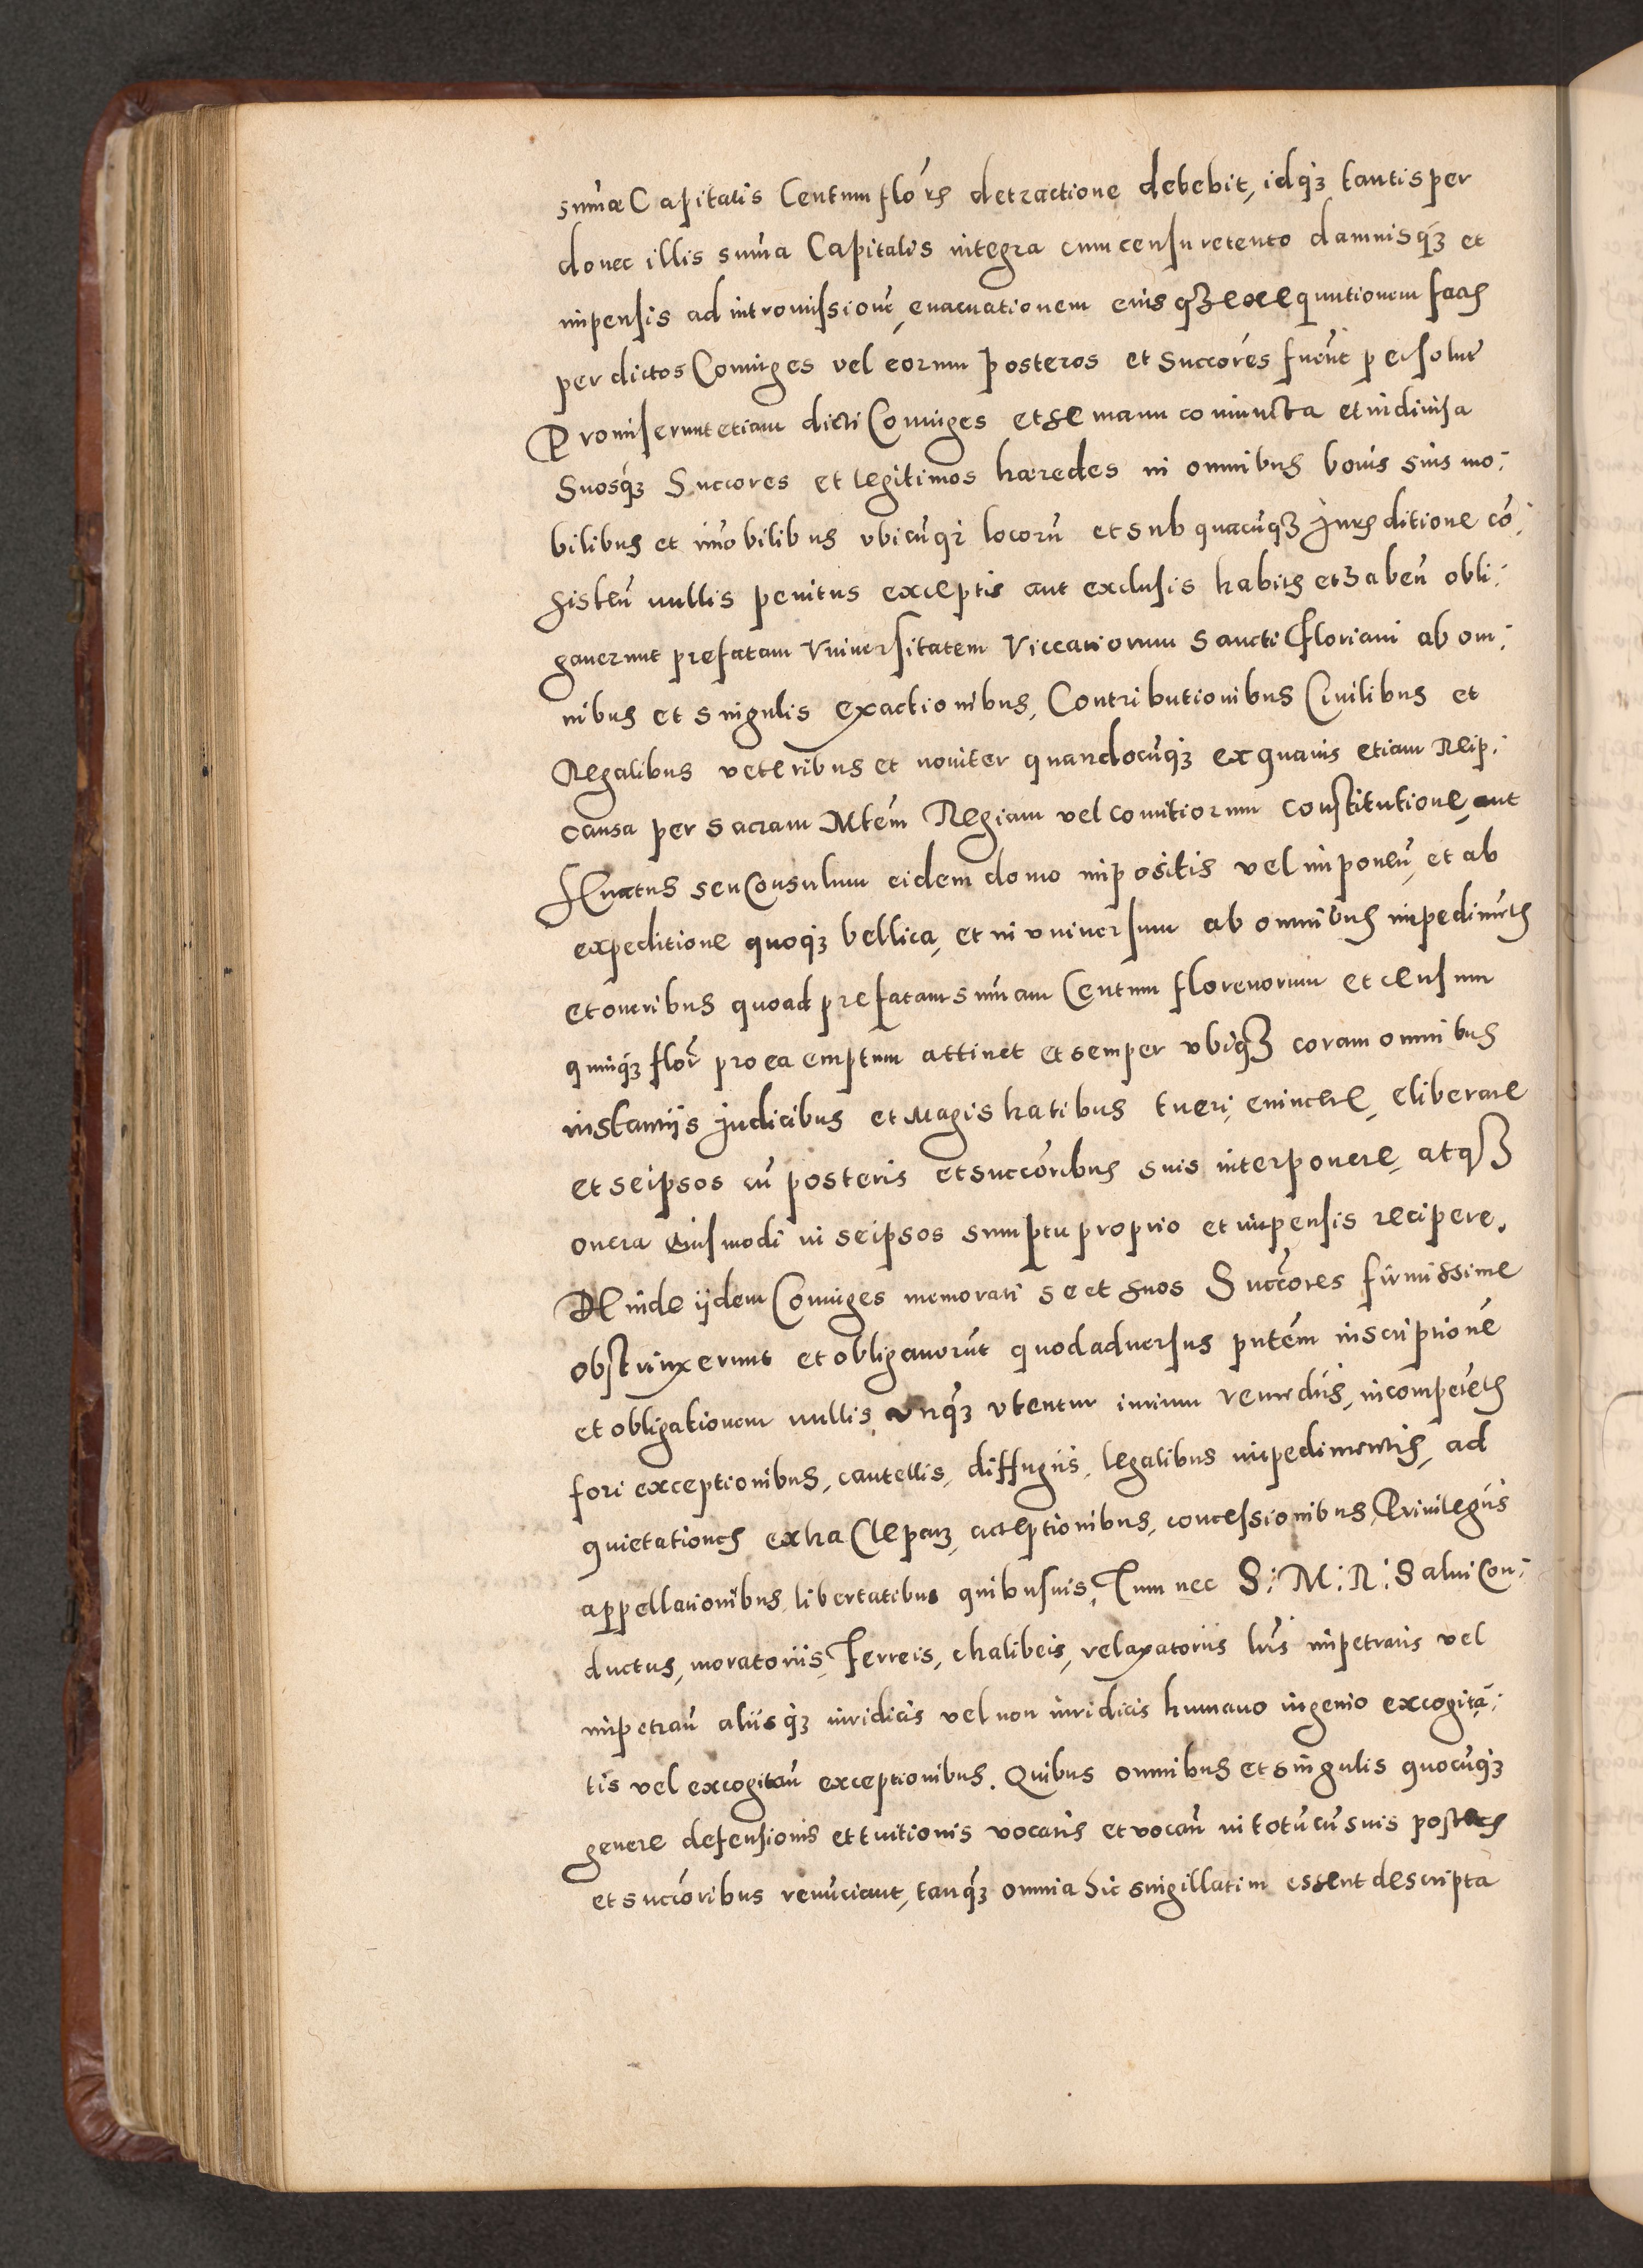 sum̄æ Capitalis Centum flo̅rꝭ detractione debebit, idqꝫ tantisper
donec illis sum̄a Capitalis integra cum censu retento damnisqꝫ et
impensis ad intromissione̅, euacuationem eiusqꝫ exequutionem factꝭ
per dictos Coniuges vel eorum posteros et Succo̅res fueri̅t persolut̅
Promiserunt etiam dicti Coniuges et se manu coniuncta et indiuisa
Suosqꝫ Succo̅res et legitimos hæredes in omnibus bonis suis mo:
bilibus et im̄obilibus vbicu̅qꝫ locoru̅ et sub quacu̅qꝫ Iurꝭditione co̅:
sisten̅ nullis penitus exceptis aut exclusis habitꝭ et haben̅ obli:
gauerunt prefatam Vniuersitatem Viccariorum Sancti Floriani ab om:
nibus et singulis exactionibus, Contributionibus Ciuilibus et
Regalibus veteribus et nouiter quandocu̅qꝫ ex quauis etiam Reip:
causa per Sacram Mte̅m Regiam vel comitiorum constitutione, aut
Senatus seu Consulum eidem domo impositis vel imponen̅, et ab
expeditione quoqꝫ bellica, et in vniuersum ab omnibus impedime̅tꝭ
et oneribus quoad prefatam sum̄am Centum florenorum et censum
quinqꝫ flor̅ pro ea emptum attinet et semper vbiqꝫ coram omnibus
instantijs Iudicibus et Magistratibus tueri, euincere, eliberare
et seipsos cu̅ posteris et succo̅ribus suis interponere, atqꝫ
onera eiusmodi in seipsos sumptu proprio et impensis recipere.
Deinde ijdem Coniuges memorati se et suos Succo̅res firmissime
obstrinxerunt et obligaueru̅t quod aduersus pn̅te̅m inscriptione̅
et obligationem nullis vnqꝫ vtentur iurium remedijs, incompete̅tꝭ
fori exceptionibus, cautellis, diffugijs, legalibus impedimentis, ad
quietationes extra Cleparꝫ, acceptionibus, concessionibus, Priuilegijs
appellationibus, libertatibus quibusuis, Tum nec S: M: R: Salui Con:
ductus, moratorijs, Ferreis, chalibeis, relaxatorijs lr̅is impetratis vel
impetran̅ alijsqꝫ iuridicis vel non iuridicis humano ingenio excogita:
tis vel excogitan̅ exceptionibus. Quibus omnibus et singulis quocu̅qꝫ
genere defensionis et tuitionis vocatis et vocan̅ in totu̅ cu̅ suis posteris
et succo̅ribus renu̅ciant, tanqꝫ omnia hic singillatim essent descripta